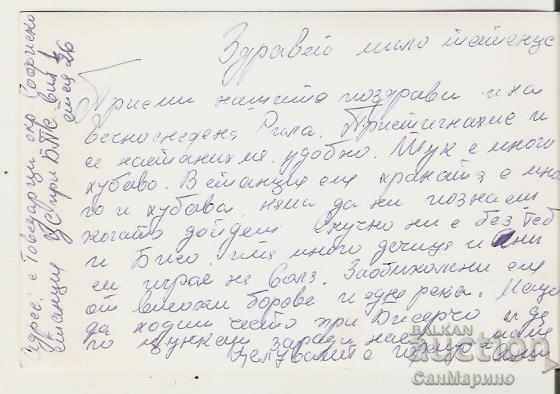 Здравей мило татенце
Приеми нашите поздрави и на
вечноснедена Рила. Пристигнахме и
се настанихме удобно. Тук е много
хубаво. В станция ни храната е мно
го и хубава, няма да ни познаеш
когато дойдем. Скучно ни е без теб
и Бисо, има много дечица и Ани
си играе на воля. Заобиколени сме
от високи борове и една река.
да ходиш често при Бисерчо и
го заради нас.
Целуваме те
Адрес: с Говедарци окр Софийско
станция УС при БПС вила
стая 26
BALKAN
auction
СанМарино